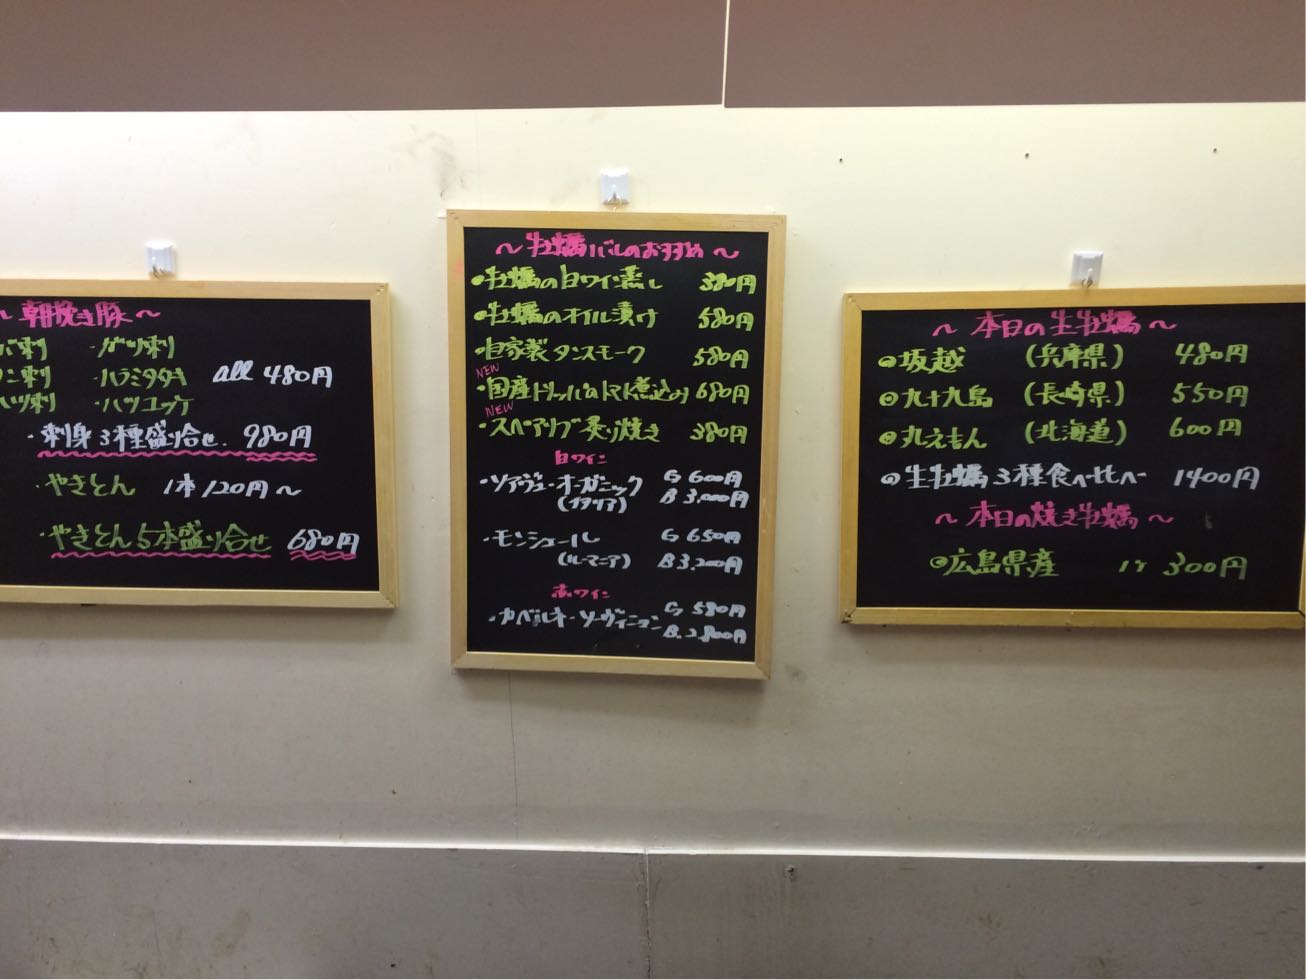 ～ 朝挽き豚 ～
・ガツ刺
・ハラミタタキ
・ハツユッケ
all 480円
・刺身3種盛り合せ. 980円
・やきとん 1本120円～
・やきとん5本盛り合せ 680円
～ 牡蠣バルのおすすめ ～
・牡蠣の白ワイン蒸し 380円
・牡蠣のオイル漬け 580円
・自家製タンスモーク 580円
NEW
・国産トリッパのトマト煮込み 680円
NEW
・スペアリブ炙り焼き 380円
白ワイン
・ソアヴェ・オーガニック G 600円
(イタリア) B 3,000円
・モンシェール G 650円
(ルーマニア) B 3,200円
赤ワイン
・カベルネ・ソーヴィニヨン G 580円
B.2,800円
～ 本日の生牡蠣 ～
坂越 (兵庫県) 480円
九十九島 (長崎県) 550円
丸えもん (北海道) 600円
生牡蠣3種食べ比べ 1400円
～ 本日の焼き牡蠣 ～
広島県産 1ケ 300円